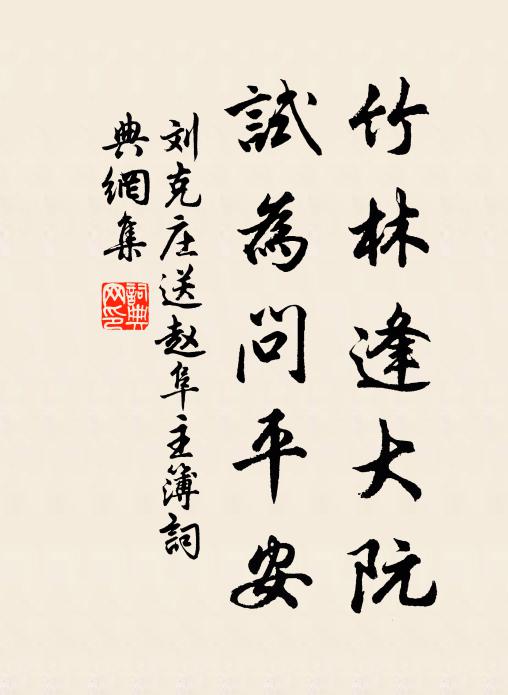 竹林逢大阮
試為問平安
刘克庄送赵阜主簿詞
典網集
詞典
网印